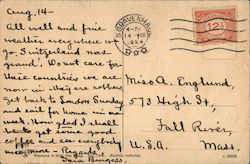 Aug. 14-
All well and fine
weather everywhere we
go. Switzerland was
grand. Do not care for
these countries we are
now in - they are robbers.
get back to London Sunday
and sail for home in a
week. How glad I shall
be to get some good
coffee and see everybody
once more - Regards
Burgess
'S GRAVENHAGE
4-5
14 VIII
1922
12½
Miss A. Englund,
573 High St,
Fall River,
U.S.A. Mass.